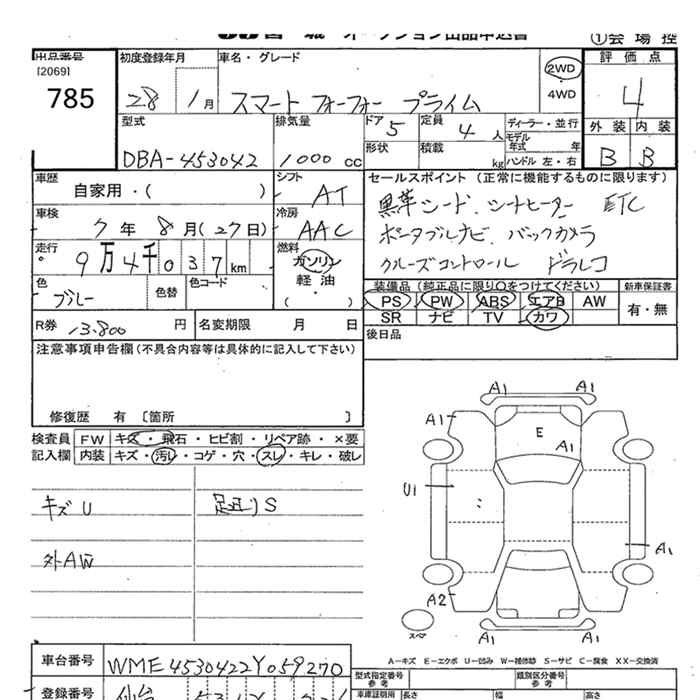 ①会場控
出品番号 初度登録年月 車名・グレード 評価点
[2069]
785 28 1月 スマート フォーフォー プライム 2WD 4
4WD
型式 排気量 ドア 5 定員 4 人 ディーラー・並行 外装 内装
モデル年式 年
DBA-453042 1000 cc 形状 積載 kg ハンドル 左・右 B B
車歴 シフト セールスポイント (正常に機能するものに限ります)
自家用・( ) AT 黒革シート、シートヒーター ETC
車検 冷房
7年 8月(27日) AAC ポータブルナビ、バックカメラ
走行 燃料
9万4千037km ガソリン クルーズコントロール ドラレコ
色 色替 色コード 軽油 装備品(純正品に限り○をつけてください) 新車保証書
ブルー (・) PS PW ABS エアB AW 有・無
R券 13.800 円 名変期限 月 日 SR ナビ TV カワ
注意事項申告欄(不具合内容等は具体的に記入して下さい) 後日品
修復歴 有 〔箇所 〕
検査員 FW キズ・飛石・ヒビ割・リペア跡・×要
記入欄 内装 キズ・汚レ・コゲ・穴・スレ・キレ・破レ
キズU 足廻りS
外AW
A1 A1
A1 E A1
U1
A1
A2
スペア A1 A1
A-キズ E-エクボ U-凹み W-補修跡 S-サビ C-腐食 XX-交換済
車台番号 WME4530422Y059270 型式指定番号 参考 類別区分番号 参考
登録番号 仙台 車庫証明用 長さ 幅 高さ